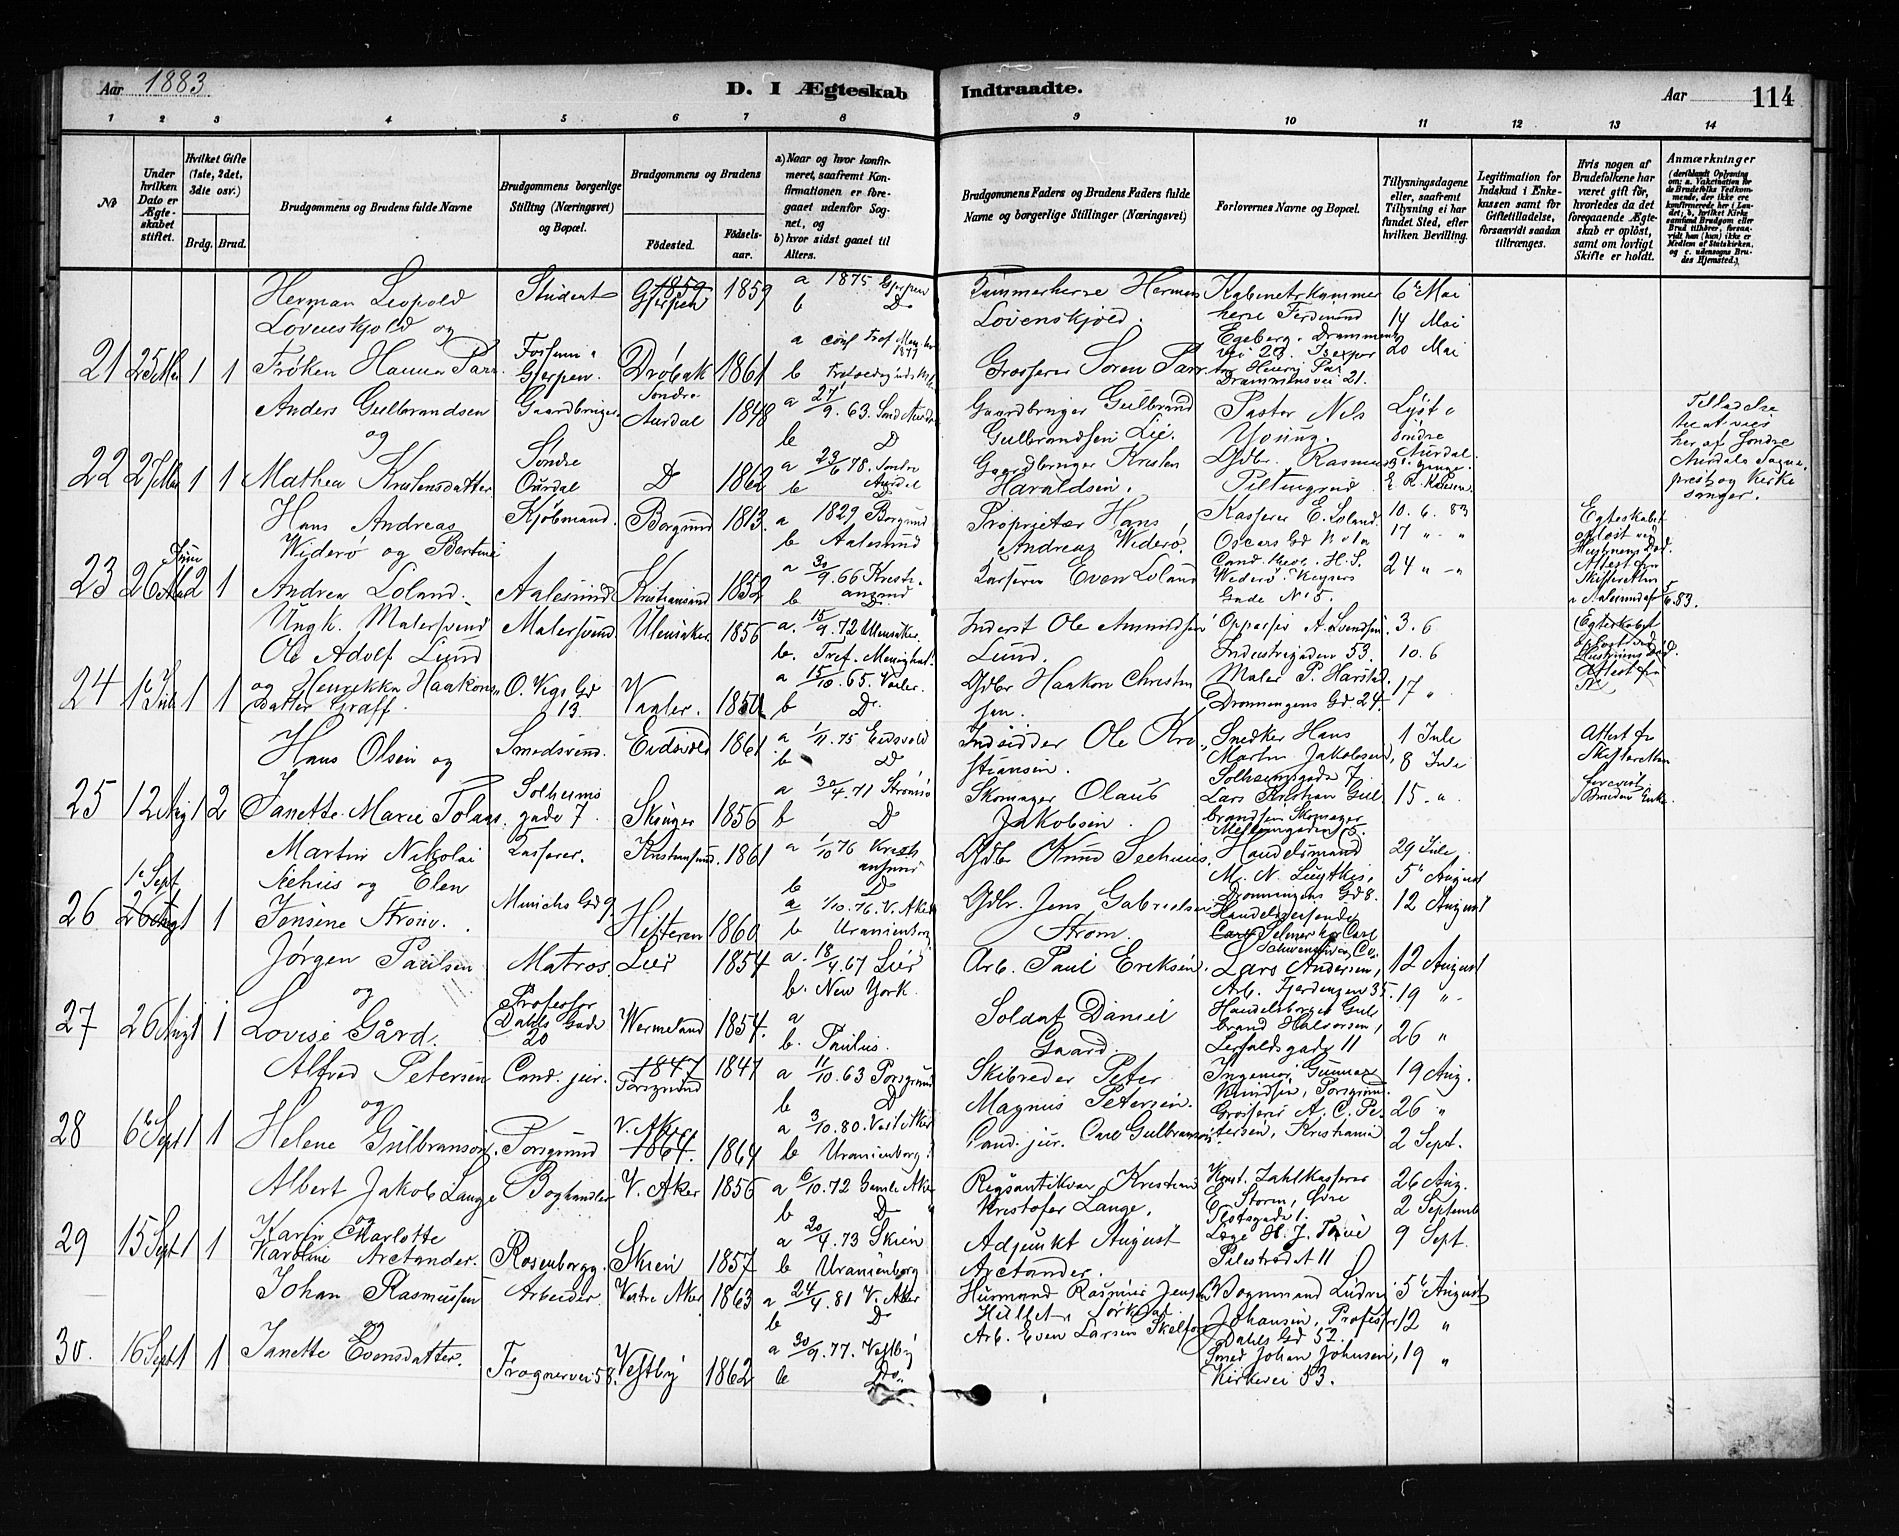 Aar 1883
D. I Ægteskab Indtraadte.
Aar 114
1 2 3 4 5 6 7 8 9 10 11 12 13 14
No
Under hvilken Dato er Ægteskabet stiftet.
Hvilket Gifte (1ste, 2det, 3die osv.)
Brdg. Brud.
Brudgommens og Brudens fulde Navne
Brudgommens borgerlige Stilling (Næringsvei) og Bopæl.
Brudgommens og Brudens
Fødested. Fødselsaar.
a) Naar og hvor konfirmeret, saafremt Konfirmationen er foregaaet udenfor Sognet, og
b) hvor sidst gaaet til Alters.
Brudgommens Faders og Brudens Faders fulde Navne og borgerlige Stillinger (Næringsvei)
Forlovernes Navne og Bopæl.
Tillysningsdagene eller, saafremt Tillysning ei har fundet Sted, efter hvilken Bevilling.
Legitimation for Indskud i Enkekassen samt for Giftetilladelse, forsaavidt saadan tiltrænges.
Hvis nogen af Brudefolkene har været gift før, hvorledes da det foregaaende Ægteskab er opløst, samt om lovligt Skifte er holdt.
Anmærkninger
(deriblandt Oplysning om: a. Vakcination for de Brudefolks Vedkommende, der ikke ere konfirmerede her i Landet; b. hvilket Kirkesamfund Brudgom eller Brud tilhører, forsaavidt han (hun) ikke er Medlem af Statskirken, og c. udensogns Brudes Hjemsted.)
Herman Leopold Student 1859 Gjerpen 1859 a 1875 Gjerpen Kammerherre Herman Kabinetskammer 6te Mai
Løvenskjold og b Do Løvenskjold. herre Ferdinand 14 Mai
Egeberg. Drammens
21 25 Mai 1 1 Frøken Hanna Parr Fossum, Gjerpen. Drøbak 1861 a conf Tref Men. 1877 Grosserer Søren Parr vei 28. 20 Mai
b Henry Parr
Drammensvei 21.
Anders Gulbrandsen Gaardbruger Søndre Aurdal 1848 a 27/9. 63. Gaardbruger Gulbrand Pastor Nils Lyst i Tilladelse
og b D Gulbrandsen Lie. Young. Søndre
22 27 Mai 1 1 Mathea Kristensdatter Søndre Aurdal D 1862 a 23/6 78. Søndre Aurdal Gaardbruger Kristen Gdbr. Rasmus Aurdal her af Søndre
b D Haraldsen. Aurdals Sogneprest og Kirkesanger.
Hans Andreas Kjøbmand. Borgund 1813. a 1829 Borgund Proprietær Hans Kasserer E. Loland. 10. 6. 83 Egteskabet
Widerø og Bertine b Aalesund Andreas Widerø. Oscars Gd No 1a 17 " " opløst ved
23 26 Juni 2 1 Andrea Loland. Aalesund Kristiansund 1852 a 30/9. 66 Kristiansund Kasserer Even Loland Cand. theol. H. S. 24 " " Hustruens Død.
b D. Widerø. Keysers Gade No 5. Attest fra Skifteretten i Aalesund
Ungk. Malersvend Malersvend Ullensaker. 1856 a. 15/9. 72 Ullensaker. Inderst Ole Amundsen Oppasser A. Svendsen. 3. 6
Ole Adolf Lund b. Tref. Menighed. Lund. Industrigaden 53. 10. 6
24 1 Juli 1 1 og Henrikka Haakons O. Vogs Gd 13. Vaaler. 1850 a 15/10. 65. Vaaler. Gdbr Haakon Christen Maler P. Harstad. 17 "
datter Graff. b D. sen. Dronningens Gd 24.
Hans Olsen og Smedsvend. Eidsvold 1861 a 1/11. 75 Eidsvold Indsidder Ole Kri Snedker Hans 1 Jule Attest fr
b D stiansen. Martin Jakobsen, 8 Jule Skifteretten
25 12 Aug 1 2 Janette Marie Tolaas. Solheims gade 7. Skouger 1856 a 30/4. 71 Strømsø Skomager Olaus Solheimsgade 7 15. "
b D Jakobsen. Lars Kristian Gulbrandsen Skomager
Martin Nikolai Kasserer. Kristiansund. 1861 a 1/10 76 Kristiansund Gdbr Knud Seehuus. Handelsmand 29 Jule
Seehus og Elen b D M. N. 5te August
26 1 Sept 26 Augt 1 1 Jensine Strøm. Munchs Gd 9. Hitteren 1860 a 1/10. 76. V. Aker Gdbr. Jens Gabrielsen Dronningens Gd 8. 12 August
b Uranienborg Strøm. Handelsreisende
Jørgen Paulsen Matros. Lier 1854 a. 18/4. 67 Lier Arb. Paul Eriksen. Lars Andersen, 12 August
og b. New York. Arb. Fjerdingen 35. 19 "
27 26 Augt 1 1 Lovise Gård. Professor Dahls Gade 20 Wermeland 1854. a Soldat Daniel Handelsborger Gul
b. Paulus. Gaard. brand Halvorsen, 26 "
gade 11
Alfred Petersen Cand. jur. 1847 Porsgrund 1847 a 11/10. 63 Porsgrund Skibsreder Peter Ingeniør Gunnar 19 Aug.
og b D Magnus Petersen. Knudsen, Porsgrund. 26 "
28 6te Sept 1 1 Helene Gulbranson. Porsgrund V. Aker 1864. 1864 a 3/10. 80. Vest. Aker Cand. jur. Carl Gulbranson. Grosserer A. C. Pe
b Uranienborg. tersen, Kristiania 2 Sept.
Albert Jakob Lange Boghandler V. Aker 1856 a 6/10. 72 Gamle Aker Rigsantikvar Kristian Konst. Zahlkasserer 26 Aug.
og b D Kristofer Lange. E. Storm, Øvre 2 Septemb
29 15 Sept 1 1 Karen Charlotte Slotsgade 1.
Karoline Arctander. Rosenborgg. Skien 1857 a 20/4. 73 Skien Adjunkt August Læge H. J. 9 Sept.
b Uranienborg Arctander. Pilestrædet 11
Johan Rasmussen Arbeider. Vestre Aker 1863 a 24/4. 81 V. Aker Husmand Rasmus Jensen Bogmand Ludvi 5te August
og b D Hullet, Sørkedal. Johansen, Profess 12 "
30. 16 Sept 1 1 Janette Evensdatter. Frognervei 58. Vestby 1862 a 30/9. 77. Vestby Arb. Even Larsen Dahls Gd 52.
b Do. Smed Johan Johnsen, 19 "
Kirkevei 53.